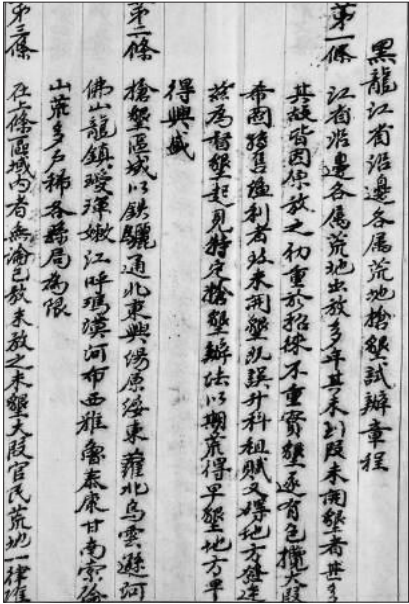 黑龍江省沿邊各属荒地搶墾試辦章程
第一條 江省沿邊各属荒地出放多年其未到段未開墾者甚多
其故皆因原放之初重於招徠不重實墾遂有包攬大段
希圖轉售漁利者致未開墾既誤升科租賦又碍地方發達
茲為督墾起見特定搶墾辦法以期荒得早墾地方早
得興盛
第二條 搶墾區域以鉄驪通北東興湯原綏東蘿北烏雲遜河
佛山龍鎮璦琿嫩江呼瑪漠河布西雅魯泰康甘南索倫
山荒多戶稀各縣局為限
第三條 在上條區域內者無論已放未放之未墾大段官民荒地一律准